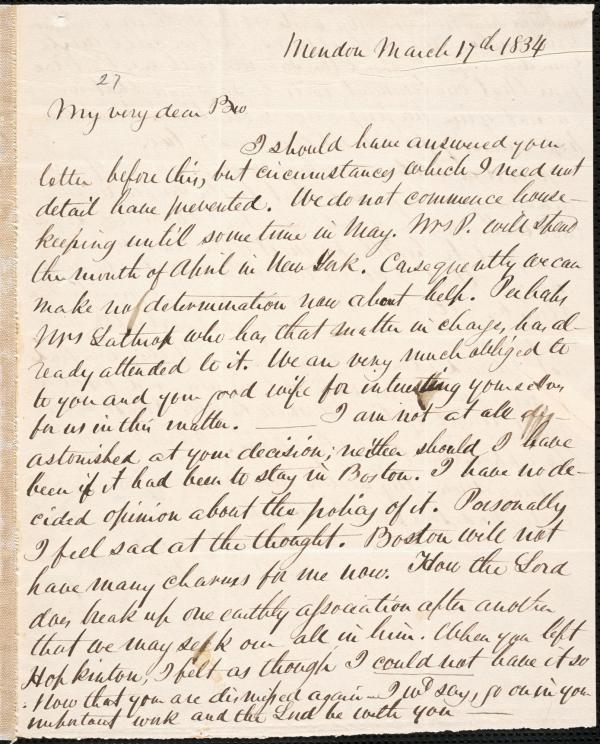 Mendon March 17th 1834
27
My very dear Bro
I should have answered your
letter before this, but circumstances which I need not
detail have prevented. We do not commence house-
keeping until some time in May. Mrs P. will spend
the month of April in New York. Consequently we can
make no determination now about help. Perhaps
Mrs Lathrop who has that matter in charge, has al-
ready attended to it. We are very much obliged to
to you and your good wife for interesting yourselves
for us in this matter. —— I am not at all
astonished at your decision; neither should I have
been if it had been to stay in Boston. I have no de-
cided opinion about the policy of it. Personally
I feel sad at the thought. Boston will not
have many charms for me now. How the Lord
does break up one earthly association after another
that we may seek our all in him. When you left
Hopkinton, I felt as though I could not have it so
. Now that you are dismissed again — I wd say, go on in your
important work and the Lord be with you —